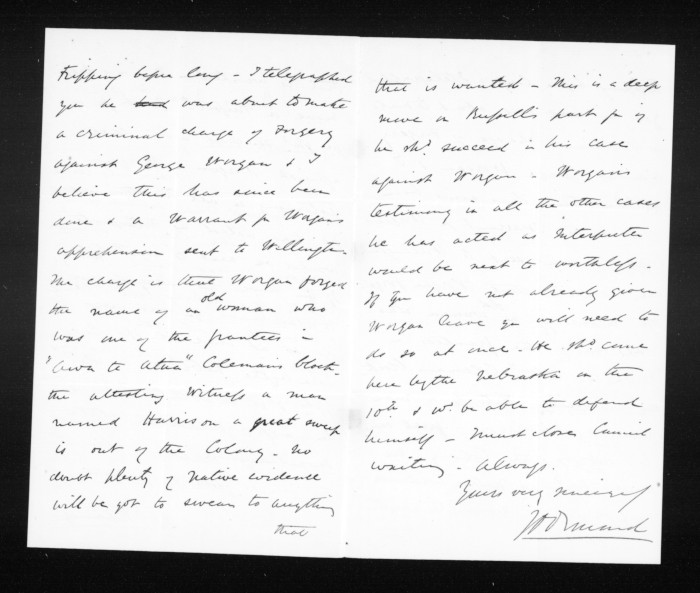 Tripping before long - I telegraphed
you he was about to make
a criminal charge of Forgery
against George Worgan & I
believe this has since been
done & a Warrant for Worgan's
apprehension sent to Wellington
The charge is that Worgan forged
the name of an old woman who
was one of the grantees in
"Awa te Atua" Coleman's block -
the attesting Witness a man
named Harrison a great sweep
is out of the Colony. no
doubt plenty of native evidence
will be got to swear to anything
that
that is wanted - This is a deep
move on Russell's part for if
he shd. succeed in his case
against Worgan - Worgan's
testimony in all the other cases
he has acted as Interpreter
would be next to worthless -
If you have not already given
Worgan leave you will need to
do so at once. He shd. come
here by the Nebraska on the
10th. & wd. be able to defend
himself - I must close Carried
waiting - Always.
Yours very sincerely
JD Ormond